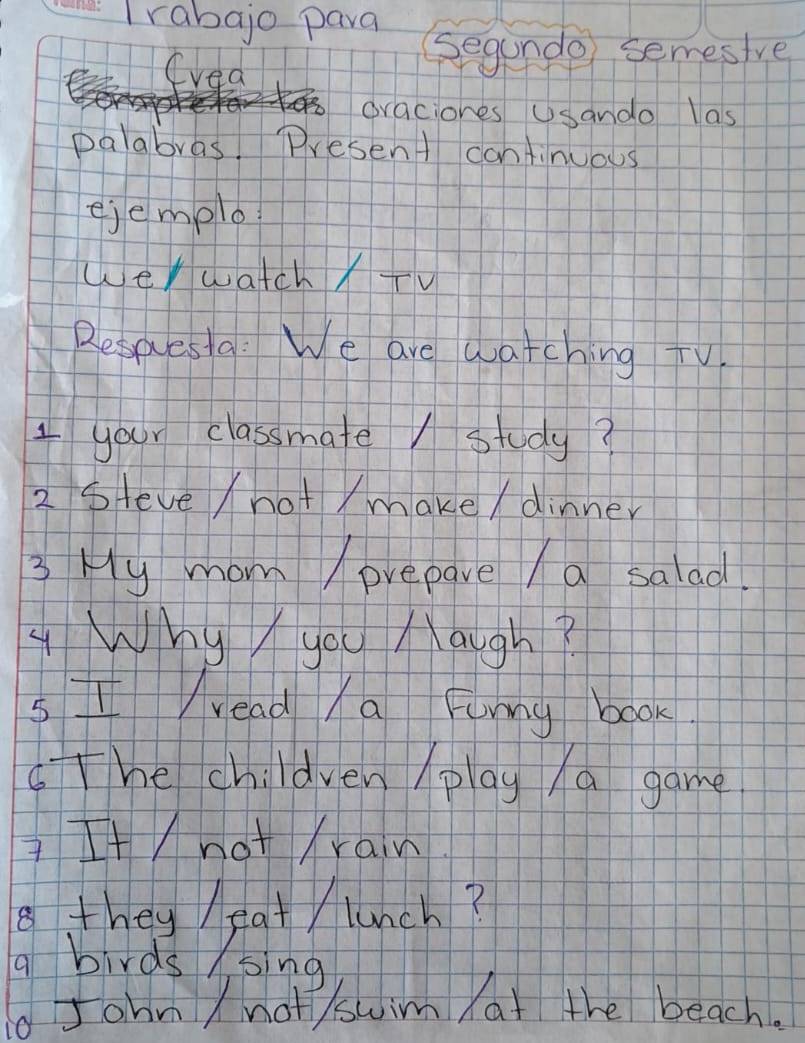 Trabajo para
segundo semestre
Crea
oraciones usando las
palabras. Present continuous
ejemplo:
we / watch / TV
Respuesta: We are watching TV.
1 your classmate / study ?
2 Steve / not / make / dinner
3 My mom / prepare / a salad.
4 Why / you / laugh ?
5 I / read / a funny book.
6 The children / play / a game.
7 It / not / rain.
8 they / eat / lunch ?
9 birds / sing
10 John / not / swim / at the beach.